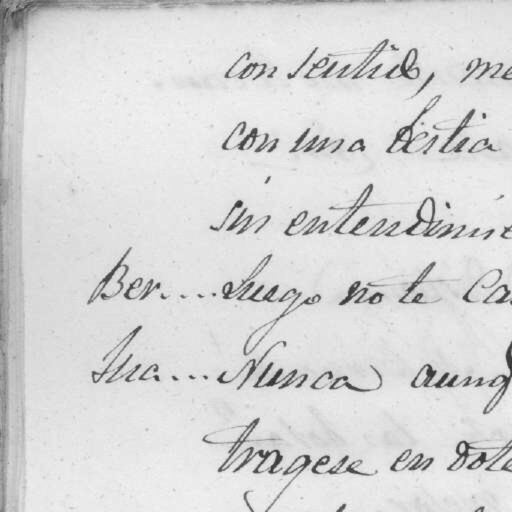 consentido, me
con una bestia
sin entendimie
Ber.... Luego no te Ca
Jua... Nunca aunq
tragese en dote